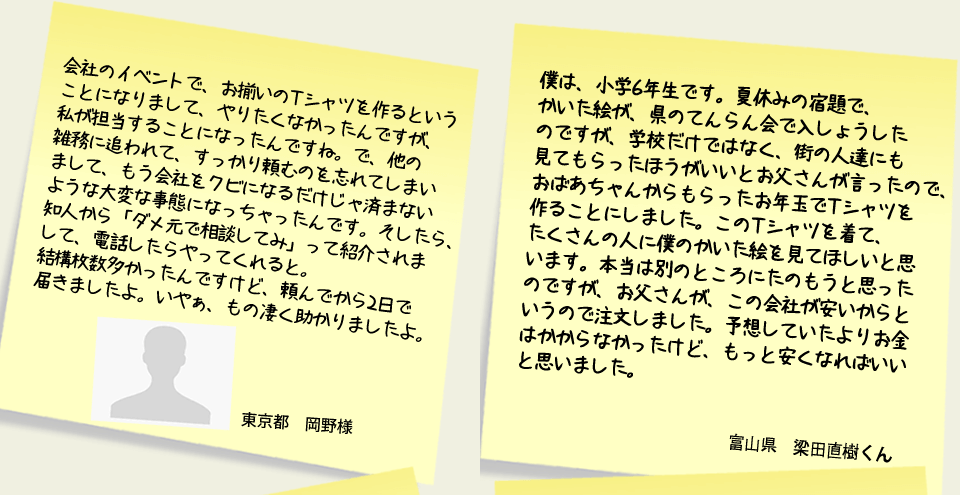 会社のイベントで、お揃いのTシャツを作るという
ことになりまして、やりたくなかったんですが、
私が担当することになったんですね。で、他の
雑務に追われて、すっかり頼むのを忘れてしまい
まして、もう会社をクビになるだけじゃ済まない
ような大変な事態になっちゃったんです。そしたら、
知人から「ダメ元で相談してみ」って紹介されま
して、電話したらやってくれると。
結構枚数多かったんですけど、頼んでから2日で
届きましたよ。いやぁ、もの凄く助かりましたよ。
東京都 岡野様
僕は、小学6年生です。夏休みの宿題で、
かいた絵が、県のてんらん会で入しょうした
のですが、学校だけではなく、街の人達にも
見てもらったほうがいいとお父さんが言ったので、
おばあちゃんからもらったお年玉でTシャツを
作ることにしました。このTシャツを着て、
たくさんの人に僕のかいた絵を見てほしいと思
います。本当は別のところにたのもうと思った
のですが、お父さんが、この会社が安いからと
いうので注文しました。予想していたよりお金
はかからなかったけど、もっと安くなればいい
と思いました。
富山県 梁田直樹くん